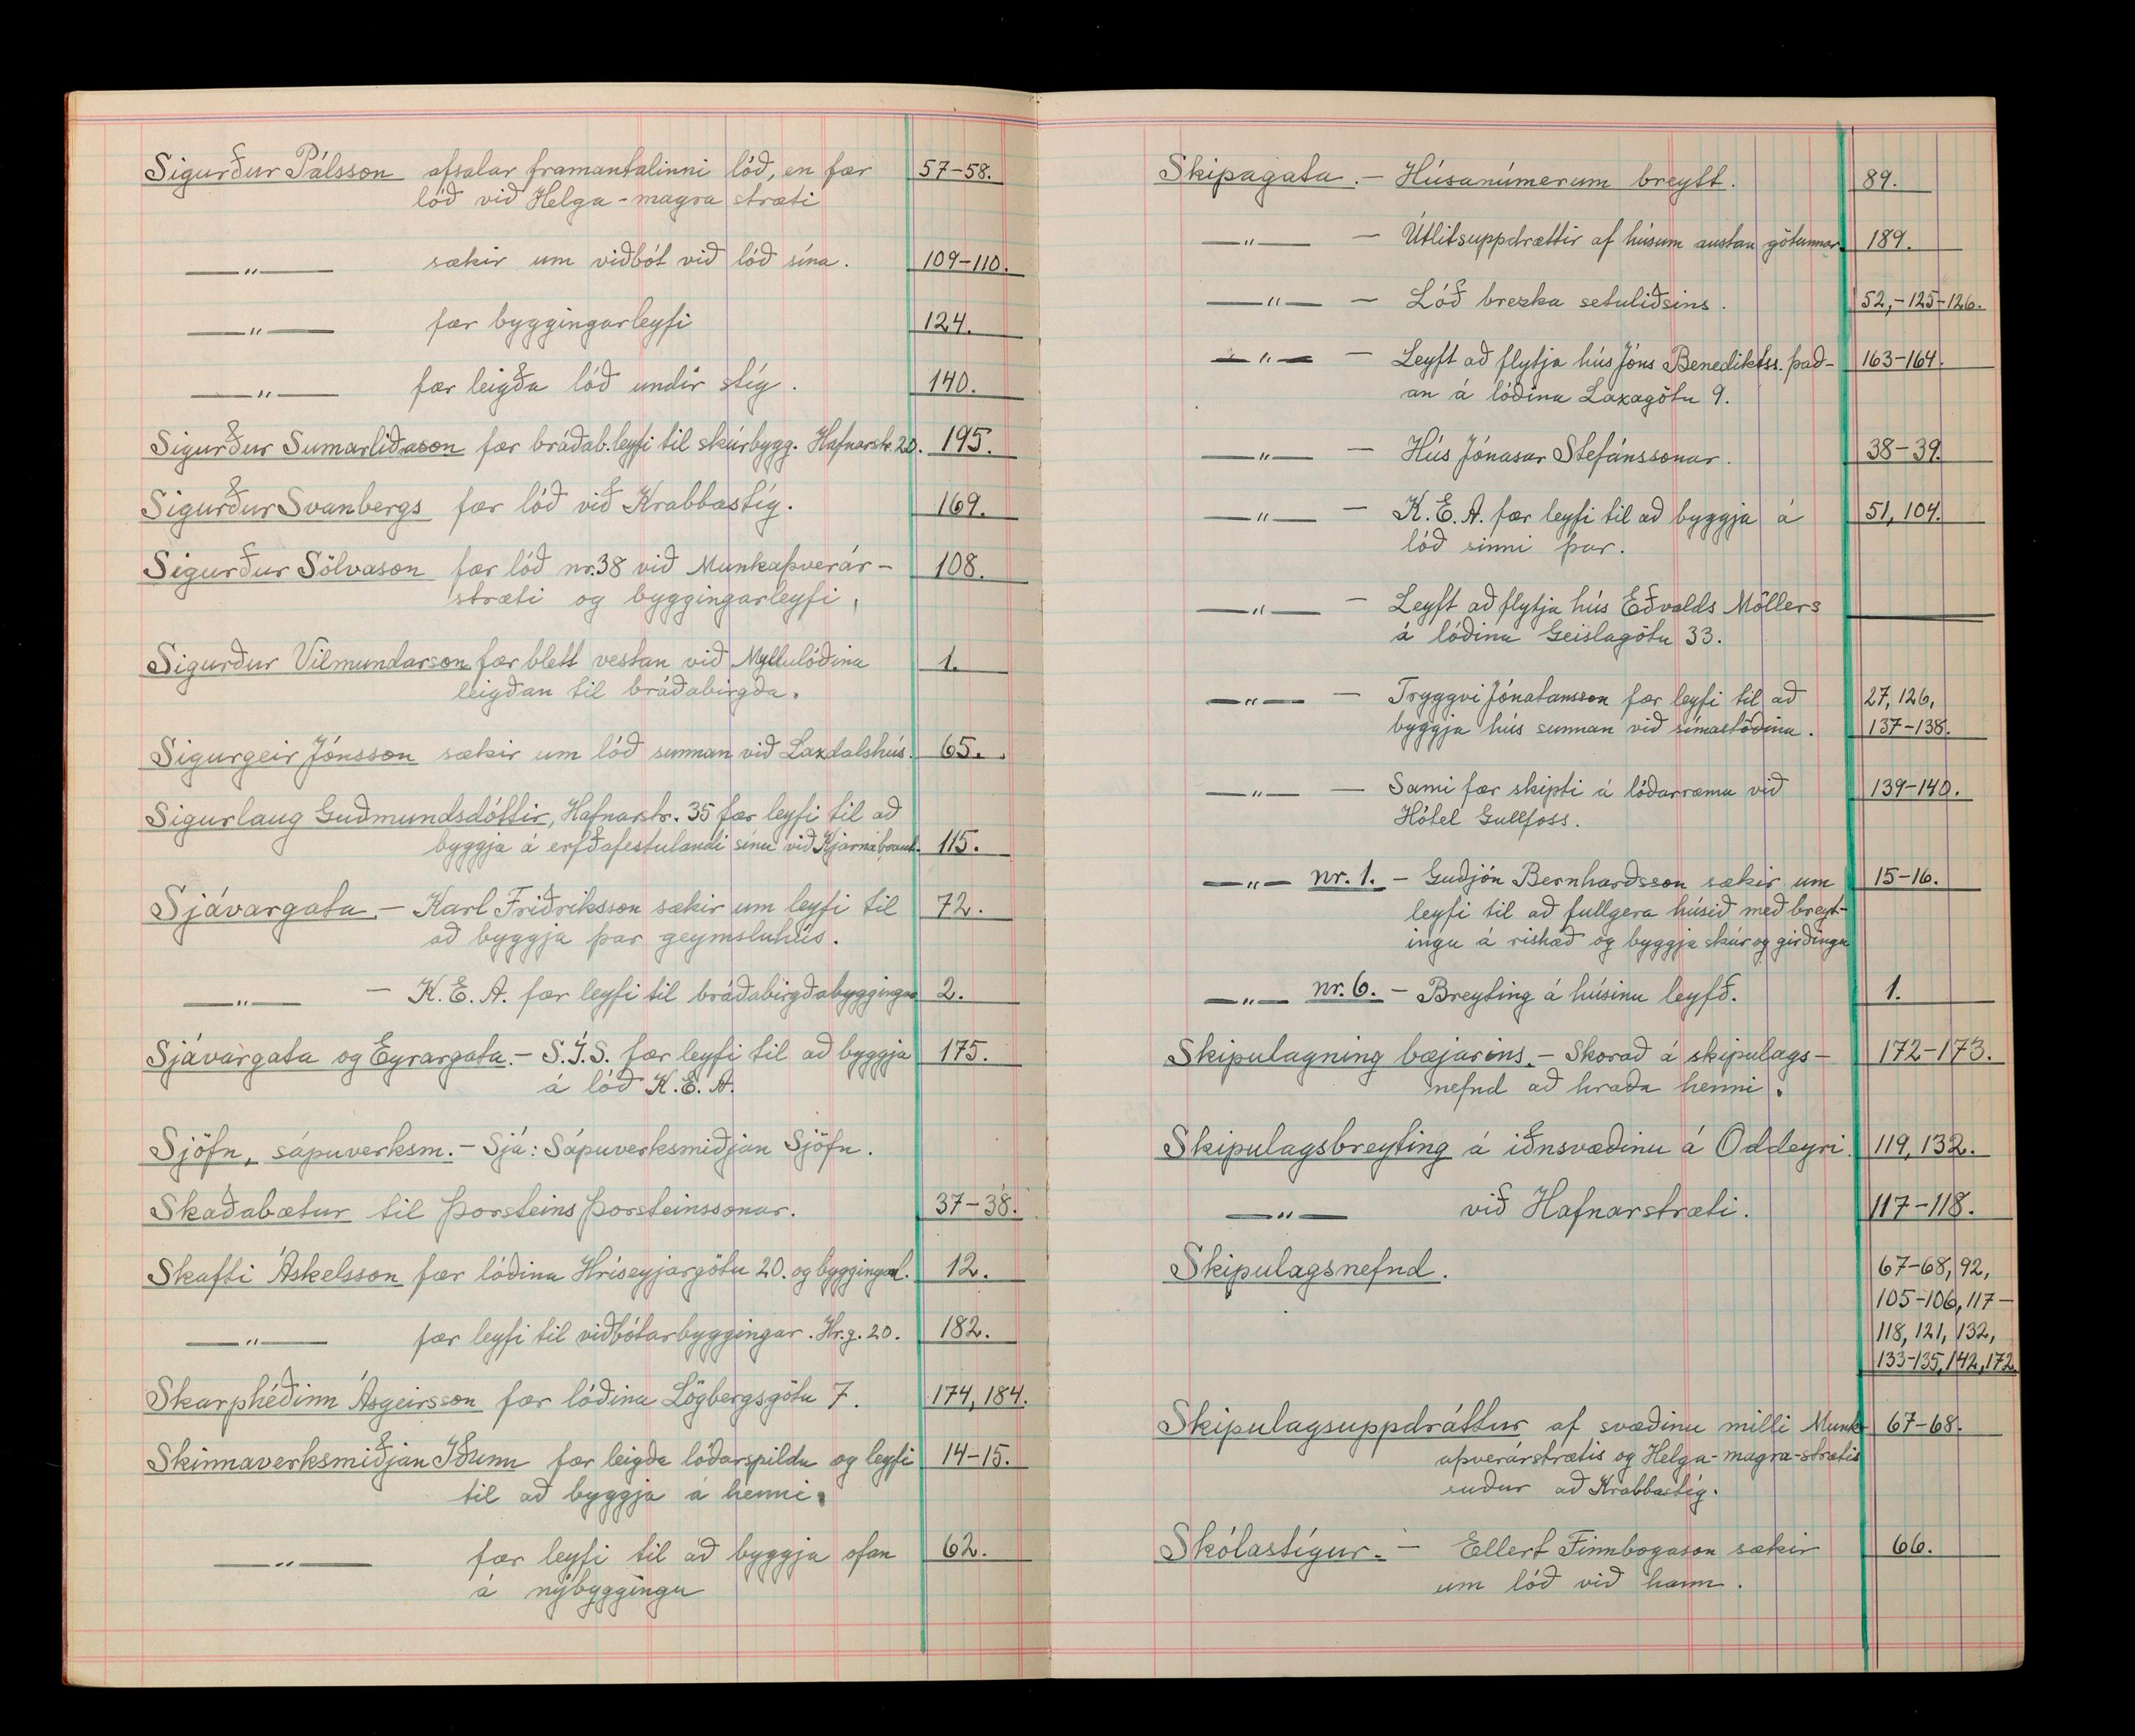 Sigurður Pálsson afsalar framantalinni lóð, en fær 57-58.
lóð við Helga-magra stræti
—„— sækir um viðbót við lóð sína. 109-110.
—„— fær byggingarleyfi 124.
—„— fær leigða lóð undir stíg. 140.
Sigurður Sumarliðason fær bráðab.leyfi til skúrbygg. Hafnarstr. 20. 195.
Sigurður Svanbergs fær lóð við Krabbastíg. 169.
Sigurður Sölvason fær lóð nr. 38 við Munkaþverár- 108.
stræti og byggingarleyfi.
Sigurður Vilmundarson fær blett vestan við Myllulóðina 1.
leigðan til bráðabirgða.
Sigurgeir Jónsson sækir um lóð sunnan við Laxdalshús. 65.
Sigurlaug Guðmundsdóttir, Hafnarstr. 35 fær leyfi til að
byggja á erfðafestulandi sínu við Kjarnabraut. 115.
Sjávargata. - Karl Friðriksson sækir um leyfi til 72.
að byggja þar geymsluhús.
—„— - K.E.A. fær leyfi til bráðabirgðabyggingar 2.
Sjávargata og Eyrargata. - S.Í.S. fær leyfi til að byggja 175.
á lóð K.E.A.
Sjöfn, sápuverksm. - Sjá: Sápuverksmiðjan Sjöfn.
Skaðabætur til Þorsteins Þorsteinssonar. 37-38.
Skafti Áskelsson fær lóðina Hríseyjargötu 20. og byggingarl. 12.
—„— fær leyfi til viðbótarbyggingar. Hr.g. 20. 182.
Skarphéðinn Ásgeirsson fær lóðina Lögbergsgötu 7. 174, 184.
Skinnaverksmiðjan Iðunn fær leigða lóðarspildu og leyfi 14-15.
til að byggja á henni.
—„— fær leyfi til að byggja ofan 62.
á nýbyggingu
Skipagata. - Húsanúmerum breytt. 89.
—„— - Útlitsuppdrættir af húsum austan götunnar. 189.
—„— - Lóð brezka setuliðsins. 52,-125-126.
—„— - Leyft að flytja hús Jóns Benediktss. það- 163-164.
an á lóðina Laxagötu 9.
—„— - Hús Jónasar Stefánssonar. 38-39.
—„— - K.E.A. fær leyfi til að byggja á 51, 104.
lóð sinni þar.
—„— - Leyft að flytja hús Eðvalds Möllers
á lóðina Geislagötu 33.
—„— - Tryggvi Jónatansson fær leyfi til að 27, 126,
byggja hús sunnan við símastöðina. 137-138.
—„— - Sami fær skipti á lóðarræmu við 139-140.
Hótel Gullfoss.
—„— nr. 1. - Guðjón Bernharðsson sækir um 15-16.
leyfi til að fullgera húsið með breyt-
ingu á rishæð og byggja skúr og girðingu
—„— nr. 6. - Breyting á húsinu leyfð. 1.
Skipulagning bæjarins. - Skorað á skipulags- 172-173.
nefnd að hraða henni.
Skipulagsbreyting á iðnsvæðinu á Oddeyri. 119, 132.
—„— við Hafnarstræti. 117-118.
Skipulagsnefnd. 67-68, 92,
105-106, 117-
118, 121, 132,
133-135, 142, 172.
Skipulagsuppdráttur af svæðinu milli Munk- 67-68.
aþverárstrætis og Helga-magra-strætis
suður að Krabbastíg.
Skólastígur. - Ellert Finnbogason sækir 66.
um lóð við hann.